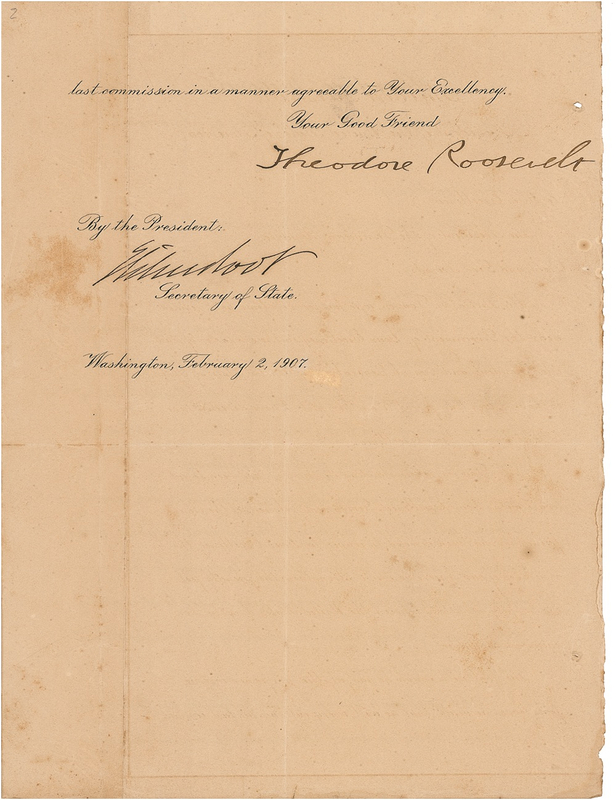 2
last commission in a manner agreeable to Your Excellency.
Your Good Friend
Theodore Roosevelt
By the President:
Elihu Root
Secretary of State.
Washington, February 2, 1907.